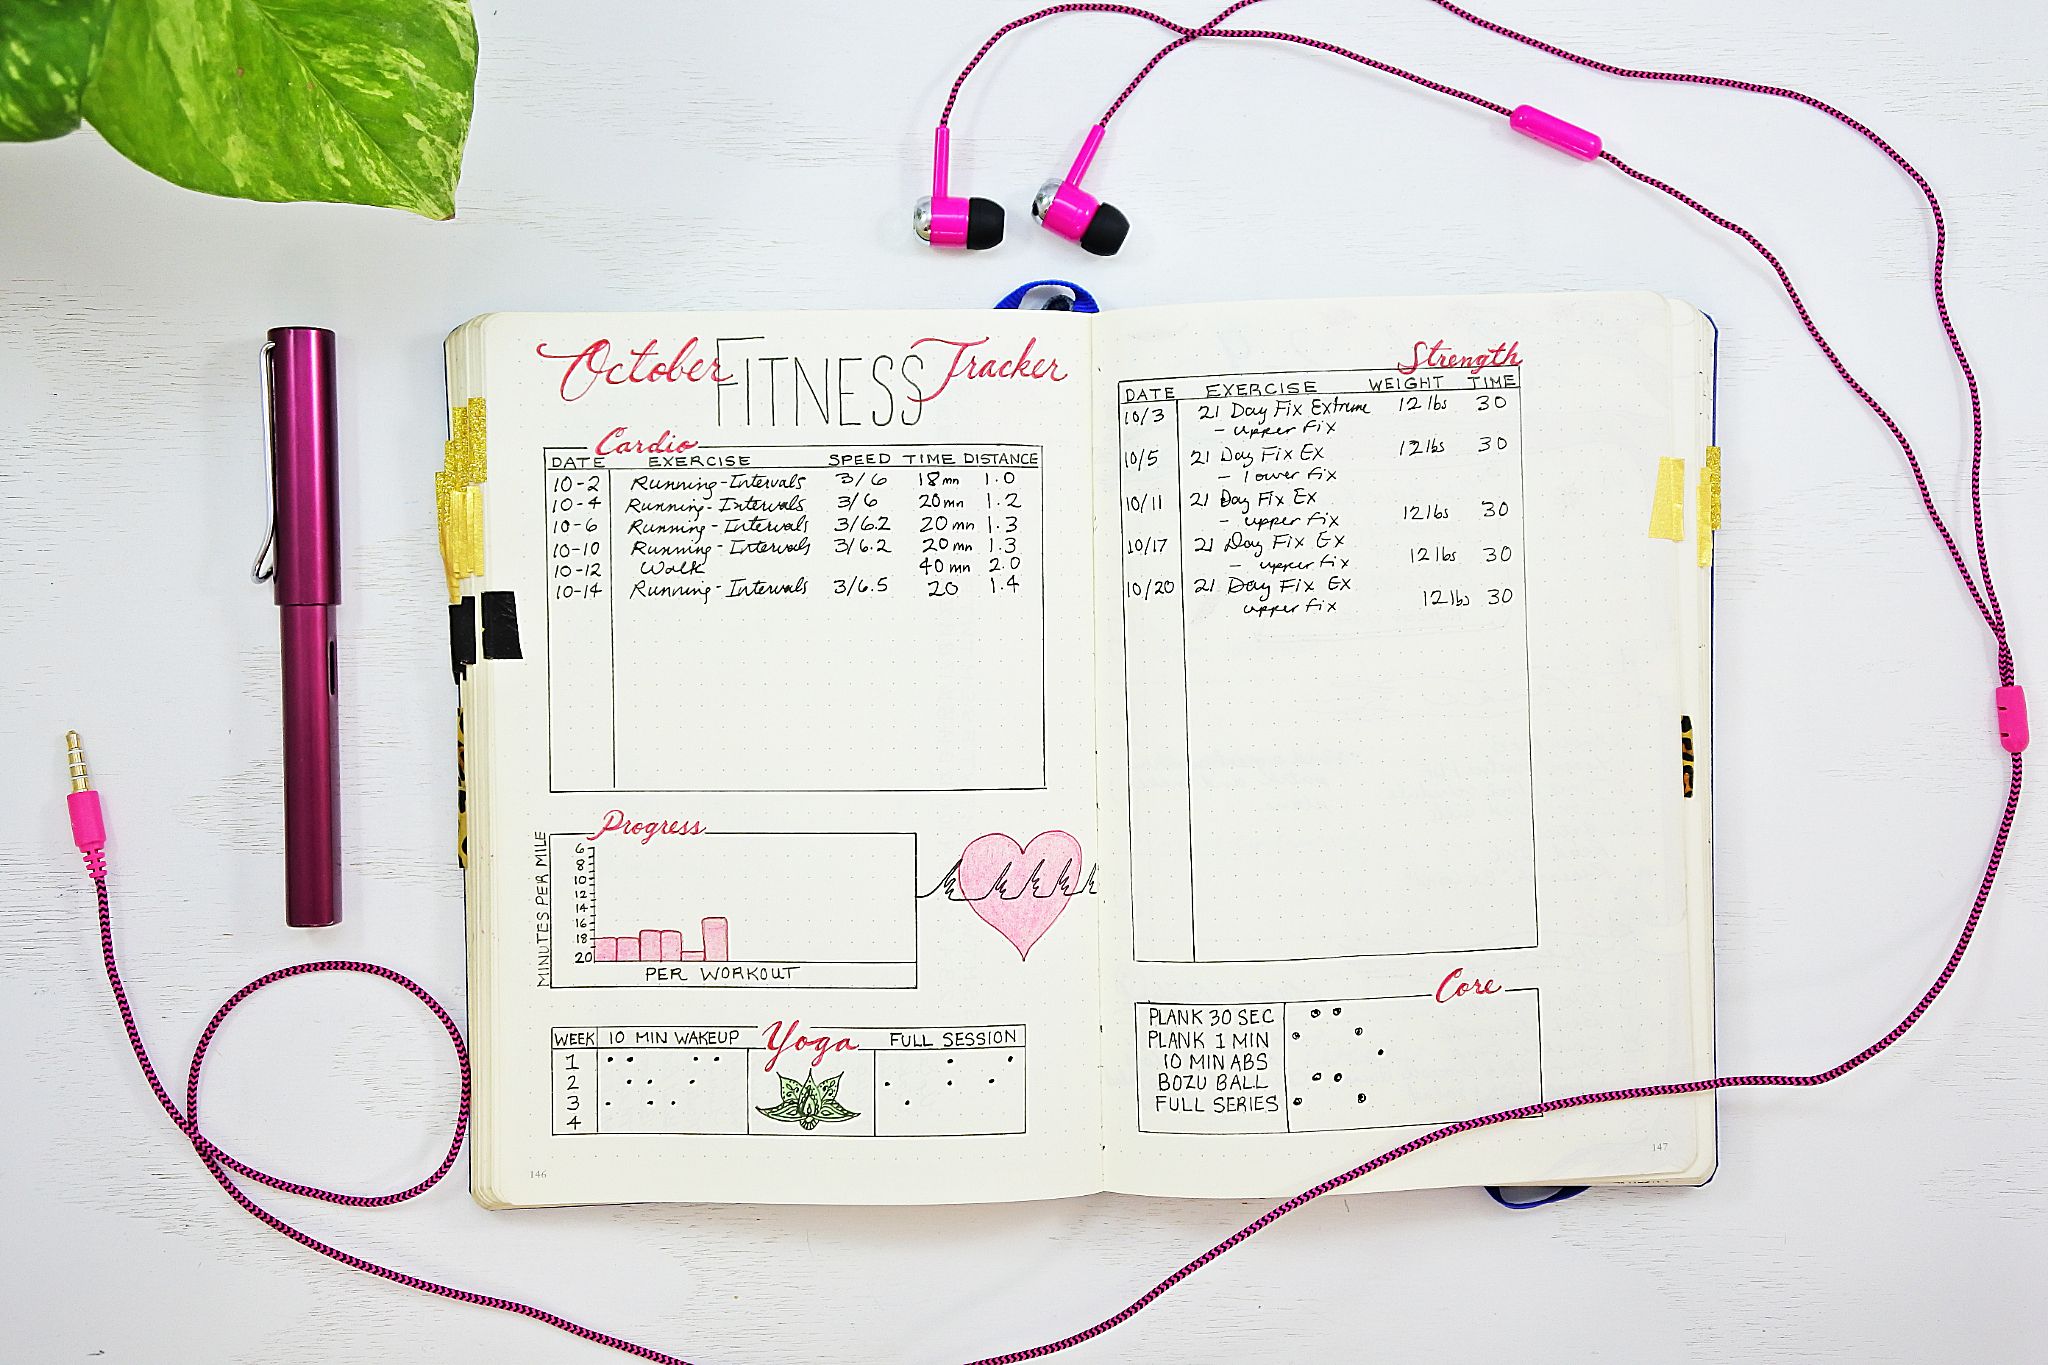 October FITNESS Tracker
Cardio
DATE EXERCISE SPEED TIME DISTANCE
10-2 Running-Intervals 3/6 18mn 1.0
10-4 Running-Intervals 3/6 20mn 1.2
10-6 Running-Intervals 3/6.2 20mn 1.3
10-10 Running-Intervals 3/6.2 20mn 1.3
10-12 Walk 40mn 2.0
10-14 Running-Intervals 3/6.5 20 1.4
Progress
MINUTES PER MILE
6
8
10
12
14
16
18
20
PER WORKOUT
Yoga
WEEK 10 MIN WAKEUP FULL SESSION
1
2
3
4
146
Strength
DATE EXERCISE WEIGHT TIME
10/3 21 Day Fix Extreme 12 lbs 30
- upper fix
10/5 21 Day Fix Ex 12 lbs 30
- lower fix
10/11 21 Day Fix Ex
- upper fix 12 lbs 30
10/17 21 Day Fix Ex
- upper fix 12 lbs 30
10/20 21 Day Fix Ex
upper fix 12 lbs 30
Core
PLANK 30 SEC
PLANK 1 MIN
10 MIN ABS
BOZU BALL
FULL SERIES
147